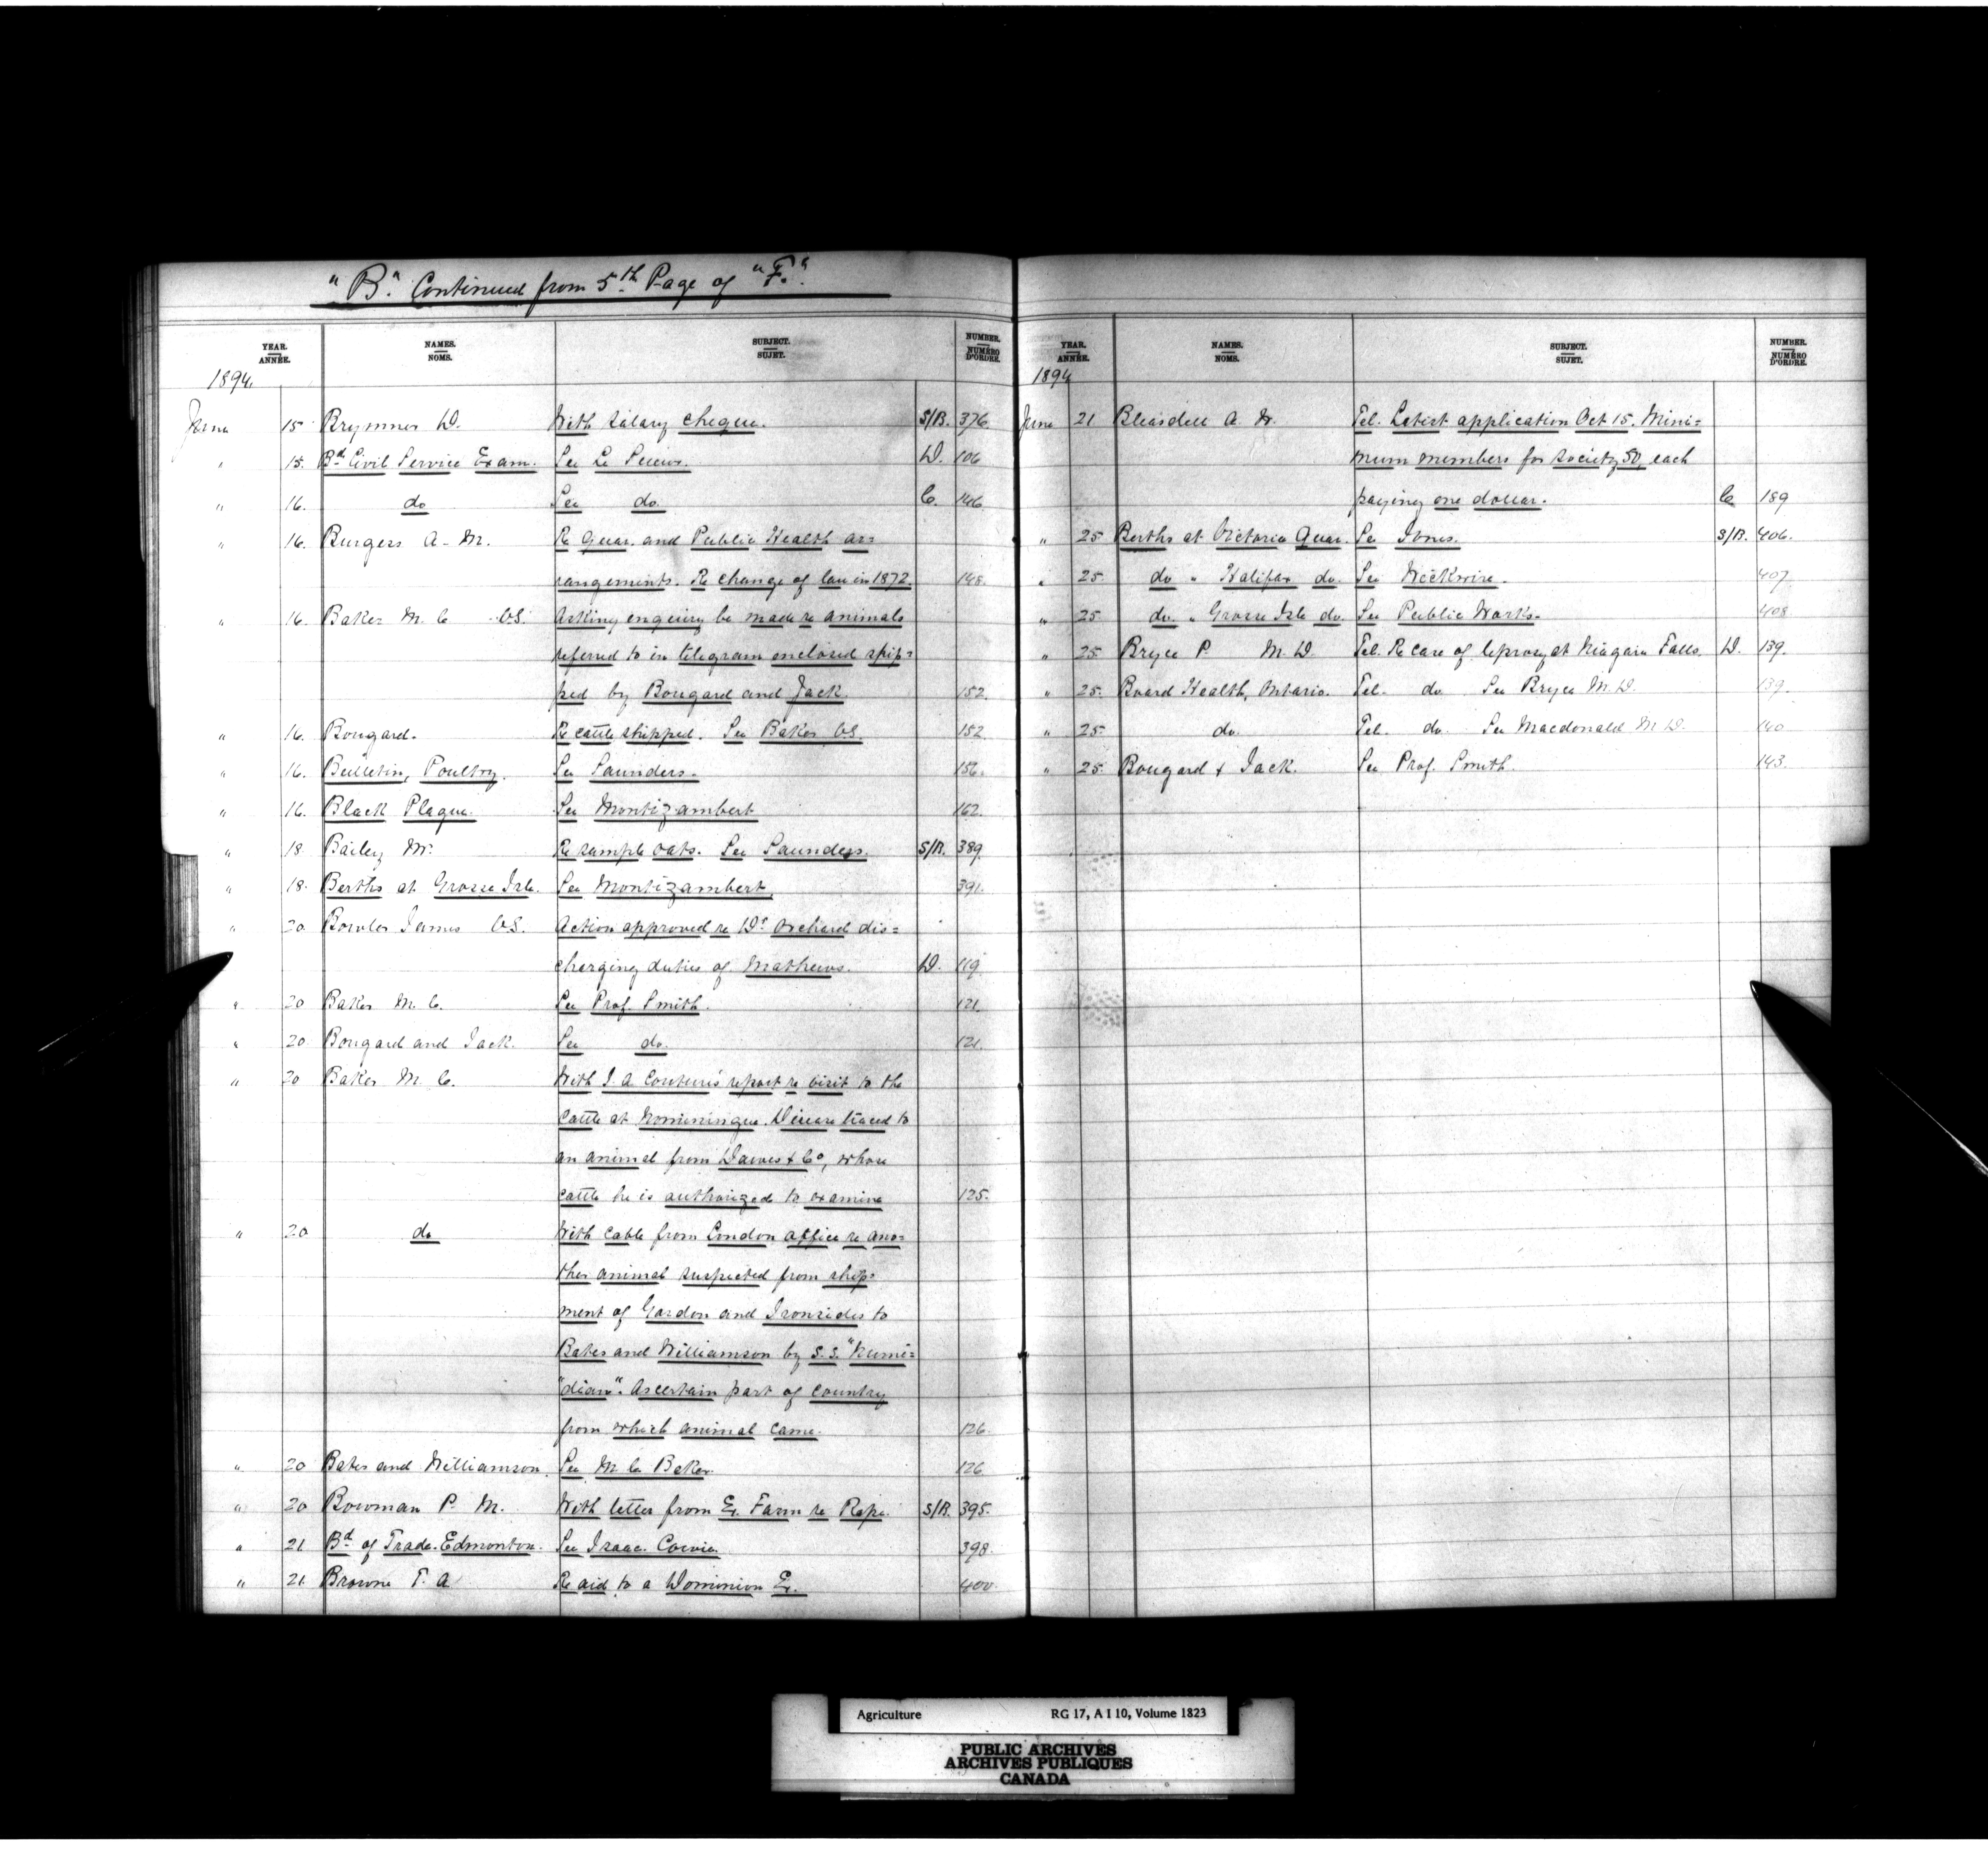 "B." Continued from 5th Page of "F."
YEAR. ANNÉE. NAMES. NOMS. SUBJECT. SUJET. NUMBER. NUMÉRO D'ORDRE.
1894.
June 15 Brymner D. With salary cheque. S/B. 376
" 15. Bd Civil Service Exam. See Le Sueur. D. 106
" 16. do See do. C. 146
" 16. Burgess A. M. Re Quar. and Public Health ar=
rangements. Re change of law in 1872. 148.
" 16. Baker M. C. V.S. Asking enquiry be made re animals
referred to in telegram enclosed ship=
ped by Bongard and Jack. 152.
" 16. Bongard. Re cattle shipped. See Baker V.S. 152.
" 16. Bulletin, Poultry. See Saunders. 156.
" 16. Black Plague. See Montizambert 162.
" 18. Bailey Mr. Re sample oats. See Saunders. S/B. 389.
" 18. Berths at Grosse Isle. See Montizambert. 391.
" 20. Bowler James V.S. Action approved re Dr Orchard dis=
charging duties of Mathews. D. 119.
" 20 Baker M. C. See Prof. Smith. 121.
" 20. Bongard and Jack. See do. 121.
" 20 Baker M. C. With J. A. Couture's report re visit to the
cattle at Nominingue. Disease traced to
an animal from Dawes & Co, whose
cattle he is authorized to examine 125.
" 20 do With cable from London office re ano=
ther animal suspected from ship=
ment of Gordon and Ironsides to
Bates and Williamson by S.S. "Numi=
"dian". Ascertain part of country
from which animal came. 126
" 20 Bates and Williamson. See M. C. Baker. 126
" 20 Bowman P. M. With letter from Ex. Farm re Rape. S/B. 395.
" 21 Bd of Trade. Edmonton. See Isaac Cowie. 398.
" 21. Browne T. A Re aid to a Dominion Ex. 400.
YEAR. ANNÉE. NAMES. NOMS. SUBJECT. SUJET. NUMBER. NUMÉRO D'ORDRE.
1894
June 21 Bleasdell A. W. Tel. Latest application Oct 15. Mini=
mum members for society, 50, each
paying one dollar. C 189
" 25. Berths at Victoria Quar. See Jones. S/B. 406.
" 25. do " Halifax do. See Wickwire. 407.
" 25 do. " Grosse Isle do. See Public Works. 408
" 25. Bryce P. M.D. Tel. Re case of leprosy at Niagara Falls. D. 139.
" 25. Board Health, Ontario. Tel. do. See Bryce M.D. 139.
" 25. do. Tel. do. See Macdonald M.D. 140
" 25. Bongard & Jack. See Prof. Smith. 143.
Agriculture RG 17, A I 10, Volume 1823
PUBLIC ARCHIVES
ARCHIVES PUBLIQUES
CANADA